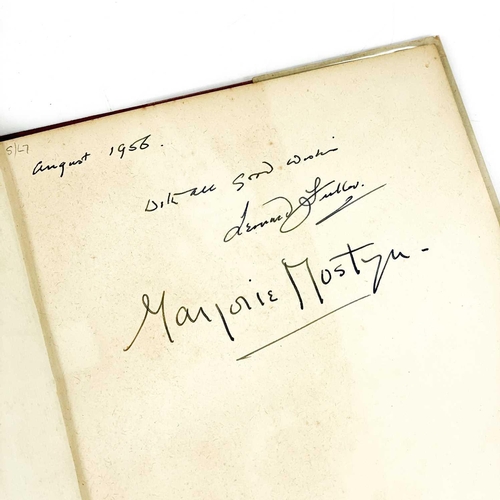 S/L7
August 1956.
With all Good Wishes
Leonard Fuller.
Marjorie Mostyn -